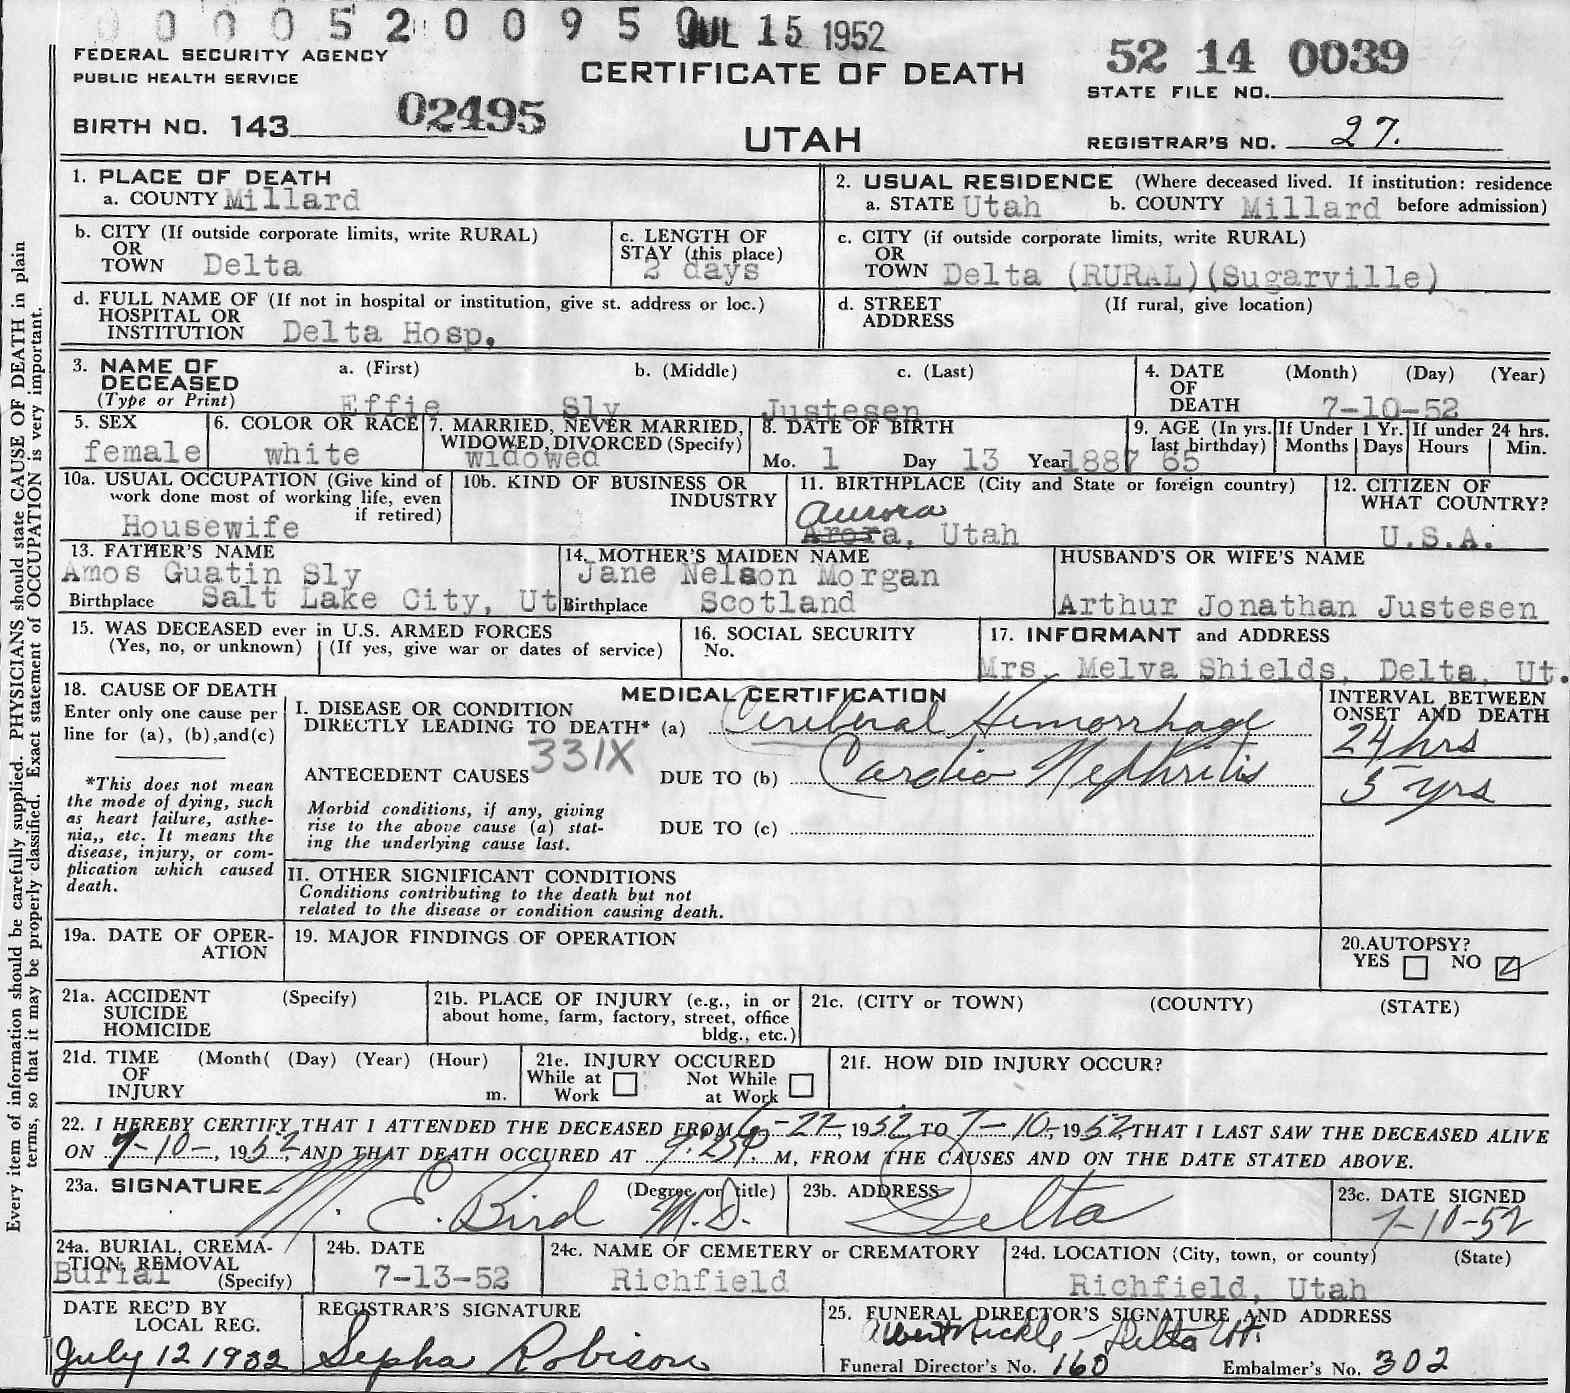 0 0 0 5 2 0 0 9 5 0 JUL 15 1952
FEDERAL SECURITY AGENCY
PUBLIC HEALTH SERVICE
CERTIFICATE OF DEATH
52 14 0039
STATE FILE NO.
BIRTH NO. 143 02495
UTAH
REGISTRAR'S NO. 27.
Every item of information should be carefully supplied. PHYSICIANS should state CAUSE OF DEATH in plain
terms, so that it may be properly classified. Exact statement of OCCUPATION is very important.
1. PLACE OF DEATH
a. COUNTY Millard
2. USUAL RESIDENCE (Where deceased lived. If institution: residence
a. STATE Utah b. COUNTY Millard before admission)
b. CITY (If outside corporate limits, write RURAL)
OR
TOWN Delta
c. LENGTH OF
STAY (this place)
2 days
c. CITY (if outside corporate limits, write RURAL)
OR
TOWN Delta (RURAL)(Sugarville)
d. FULL NAME OF (If not in hospital or institution, give st. address or loc.)
HOSPITAL OR
INSTITUTION Delta Hosp.
d. STREET (If rural, give location)
ADDRESS
3. NAME OF a. (First) b. (Middle) c. (Last)
DECEASED
(Type or Print) Effie Sly Justesen
4. DATE (Month) (Day) (Year)
OF
DEATH 7-10-52
5. SEX
female
6. COLOR OR RACE
white
7. MARRIED, NEVER MARRIED,
WIDOWED, DIVORCED (Specify)
widowed
8. DATE OF BIRTH
Mo. 1 Day 13 Year 1887
9. AGE (In yrs.
last birthday)
65
If Under 1 Yr.
Months Days
If under 24 hrs.
Hours Min.
10a. USUAL OCCUPATION (Give kind of
work done most of working life, even
if retired)
Housewife
10b. KIND OF BUSINESS OR
INDUSTRY
11. BIRTHPLACE (City and State or foreign country)
Aurora
Arora, Utah
12. CITIZEN OF
WHAT COUNTRY?
U.S.A.
13. FATHER'S NAME
Amos Guatin Sly
Birthplace Salt Lake City, Ut
14. MOTHER'S MAIDEN NAME
Jane Nelson Morgan
Birthplace Scotland
HUSBAND'S OR WIFE'S NAME
Arthur Jonathan Justesen
15. WAS DECEASED ever in U.S. ARMED FORCES
(Yes, no, or unknown) (If yes, give war or dates of service)
16. SOCIAL SECURITY
No.
17. INFORMANT and ADDRESS
Mrs. Melva Shields, Delta, Ut.
18. CAUSE OF DEATH
Enter only one cause per
line for (a), (b),and(c)
*This does not mean
the mode of dying, such
as heart failure, asthe-
nia,, etc. It means the
disease, injury, or com-
plication which caused
death.
MEDICAL CERTIFICATION
I. DISEASE OR CONDITION
DIRECTLY LEADING TO DEATH* (a) Cerebral Hemorrhage
331X
ANTECEDENT CAUSES DUE TO (b) Cardio Nephritis
Morbid conditions, if any, giving
rise to the above cause (a) stat-
ing the underlying cause last.
DUE TO (c)
INTERVAL BETWEEN
ONSET AND DEATH
24 hrs
5 yrs
II. OTHER SIGNIFICANT CONDITIONS
Conditions contributing to the death but not
related to the disease or condition causing death.
19a. DATE OF OPER-
ATION
19. MAJOR FINDINGS OF OPERATION
20.AUTOPSY?
YES NO
21a. ACCIDENT (Specify)
SUICIDE
HOMICIDE
21b. PLACE OF INJURY (e.g., in or
about home, farm, factory, street, office
bldg., etc.)
21c. (CITY or TOWN) (COUNTY) (STATE)
21d. TIME (Month( (Day) (Year) (Hour)
OF
INJURY m.
21e. INJURY OCCURED
While at Not While
Work at Work
21f. HOW DID INJURY OCCUR?
22. I HEREBY CERTIFY THAT I ATTENDED THE DECEASED FROM 6-27-, 1952, TO 7-10-, 1952, THAT I LAST SAW THE DECEASED ALIVE
ON 7-10-, 1952, AND THAT DEATH OCCURED AT 9:25P M, FROM THE CAUSES AND ON THE DATE STATED ABOVE.
23a. SIGNATURE (Degree or title)
M. E. Bird M.D.
23b. ADDRESS
Delta
23c. DATE SIGNED
7-10-52
24a. BURIAL, CREMA-
TION, REMOVAL
Burial (Specify)
24b. DATE
7-13-52
24c. NAME OF CEMETERY or CREMATORY
Richfield
24d. LOCATION (City, town, or county) (State)
Richfield, Utah
DATE REC'D BY
LOCAL REG.
July 12 1952
REGISTRAR'S SIGNATURE
Sepha Robison
25. FUNERAL DIRECTOR'S SIGNATURE AND ADDRESS
Albert Nickle - Delta Ut.
Funeral Director's No. 160 Embalmer's No. 302